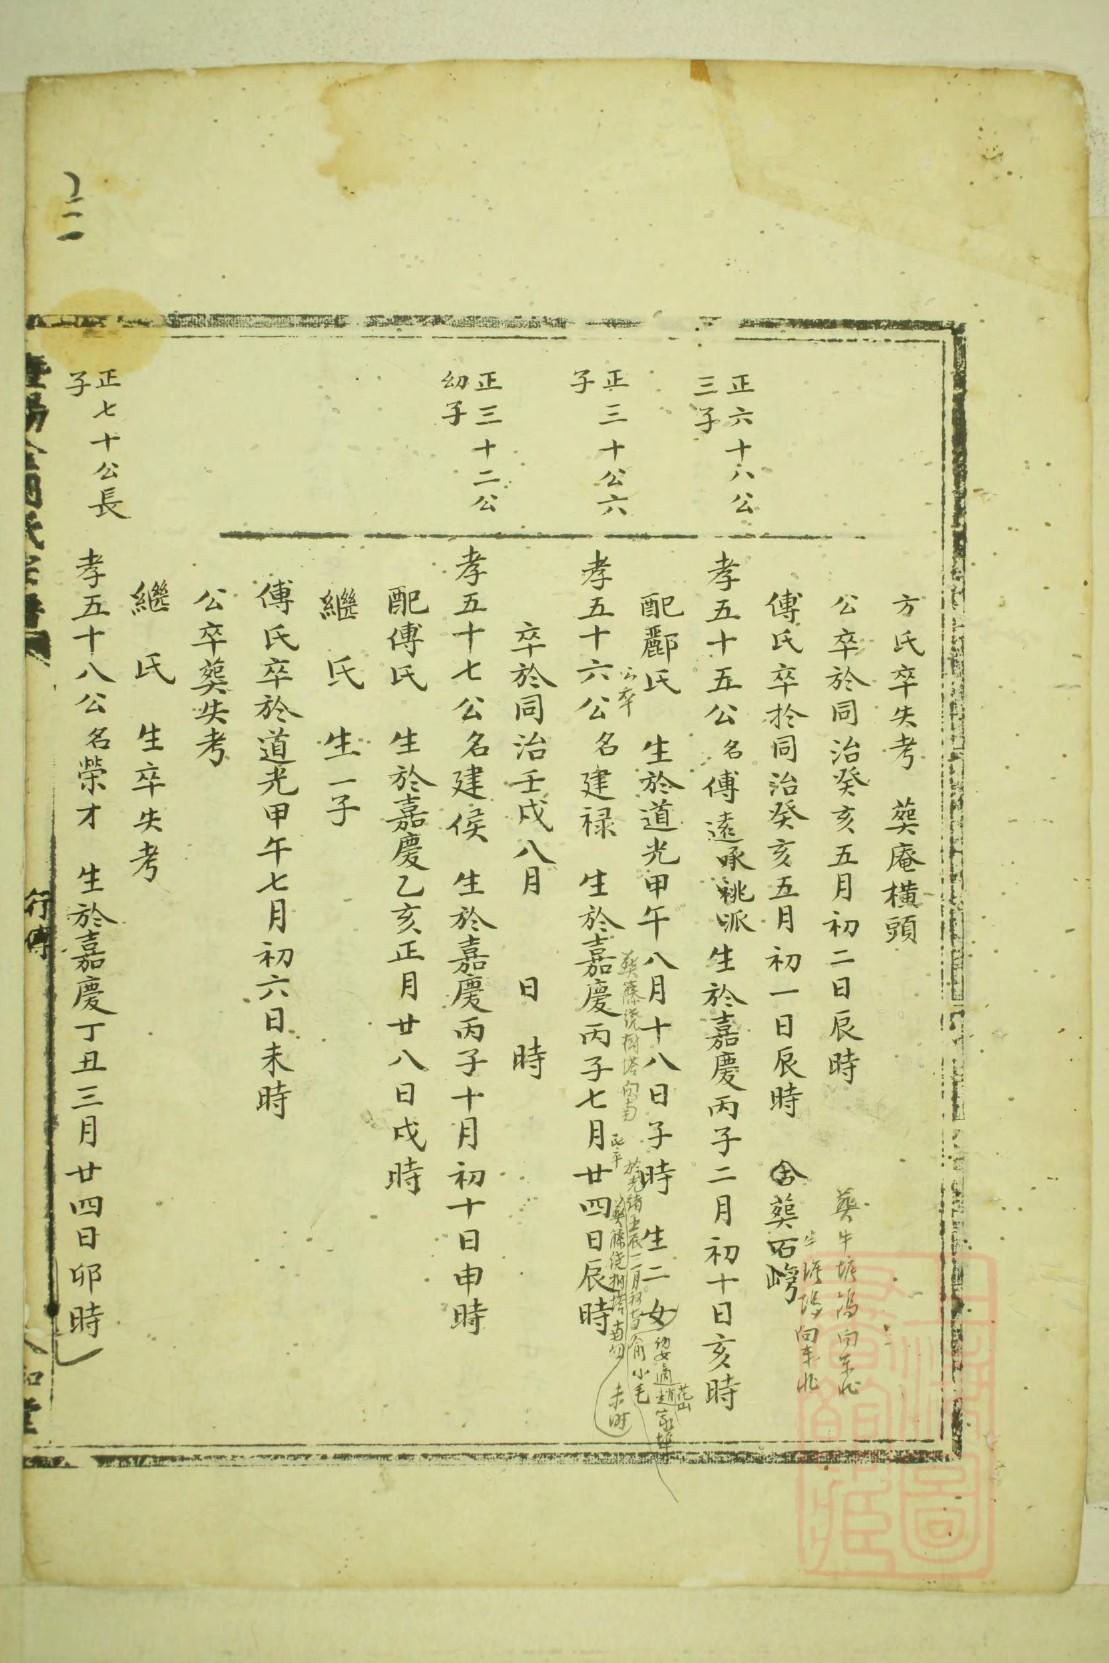 方氏卒失考　葬庵橫頭
公卒於同治癸亥五月初二日辰時
葬牛塘塢向東北
傅氏卒於同治癸亥五月初一日辰時　葬石
牛塘塢向東北
正六十八公
三子
孝五十五公名傅遠承祧派生於嘉慶丙子二月初十日亥時
配酈氏　生於道光甲午八月十八日子時　生二女
公卒
正三十公六
子
孝五十六公名建祿　生於嘉慶丙子七月廿四日辰時
卒於同治壬戌八月　日　時
正三十二公
幼子
孝五十七公名建侯　生於嘉慶丙子十月初十日申時
配傅氏　生於嘉慶乙亥正月廿八日戌時
繼　氏　生一子
傅氏卒於道光甲午七月初六日未時
公卒葬失考
繼　氏　生卒失考
正七十公長
子
孝五十八公名榮才　生於嘉慶丁丑三月廿四日卯時
行傳